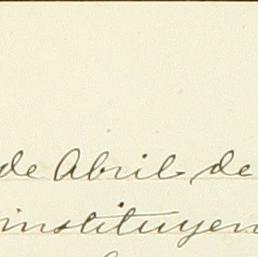 de Abril de
instituyen